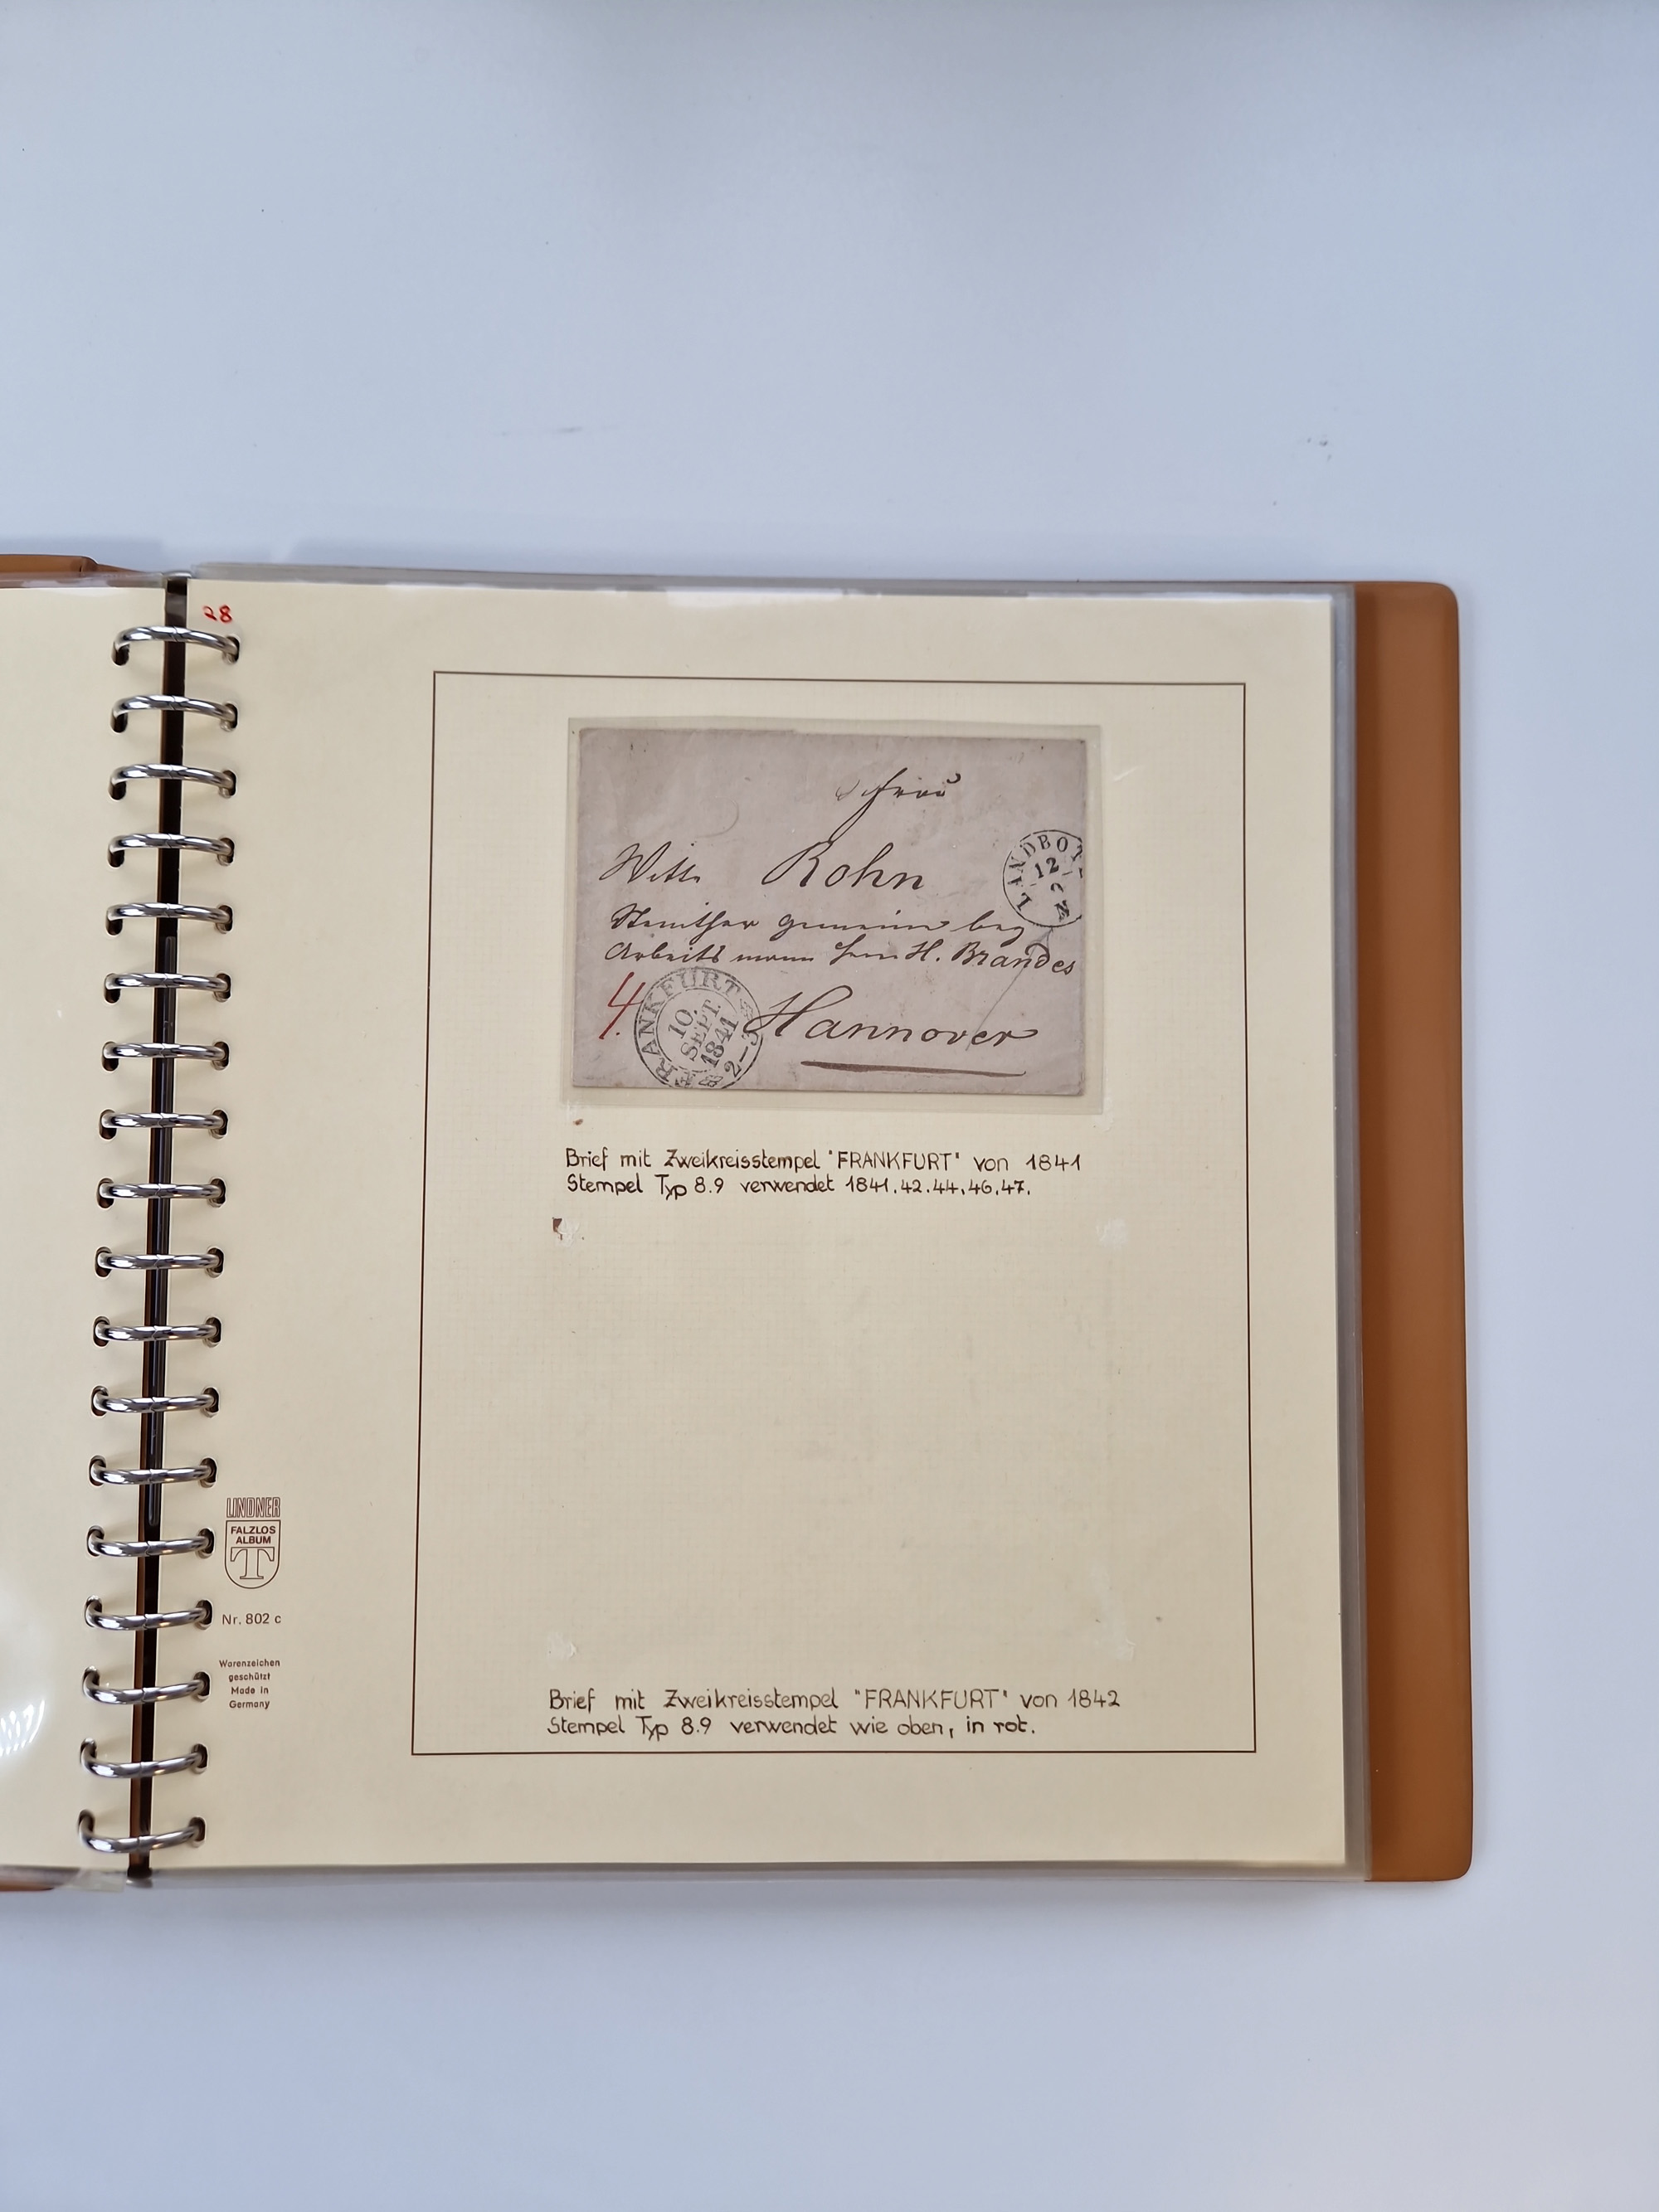 28
Frau
Rohn
LANDBOT
12
H. Brandes
4.
FRANKFURT
10.
SEPT.
1841
2-3
Hannover
Brief mit Zweikreisstempel "FRANKFURT" von 1841
Stempel Typ 8.9 verwendet 1841.42.44.46.47.
LINDNER
FALZLOS
ALBUM
T
Nr. 802 c
Warenzeichen
geschützt
Made in
Germany
Brief mit Zweikreisstempel "FRANKFURT" von 1842
Stempel Typ 8.9 verwendet wie oben, in rot.